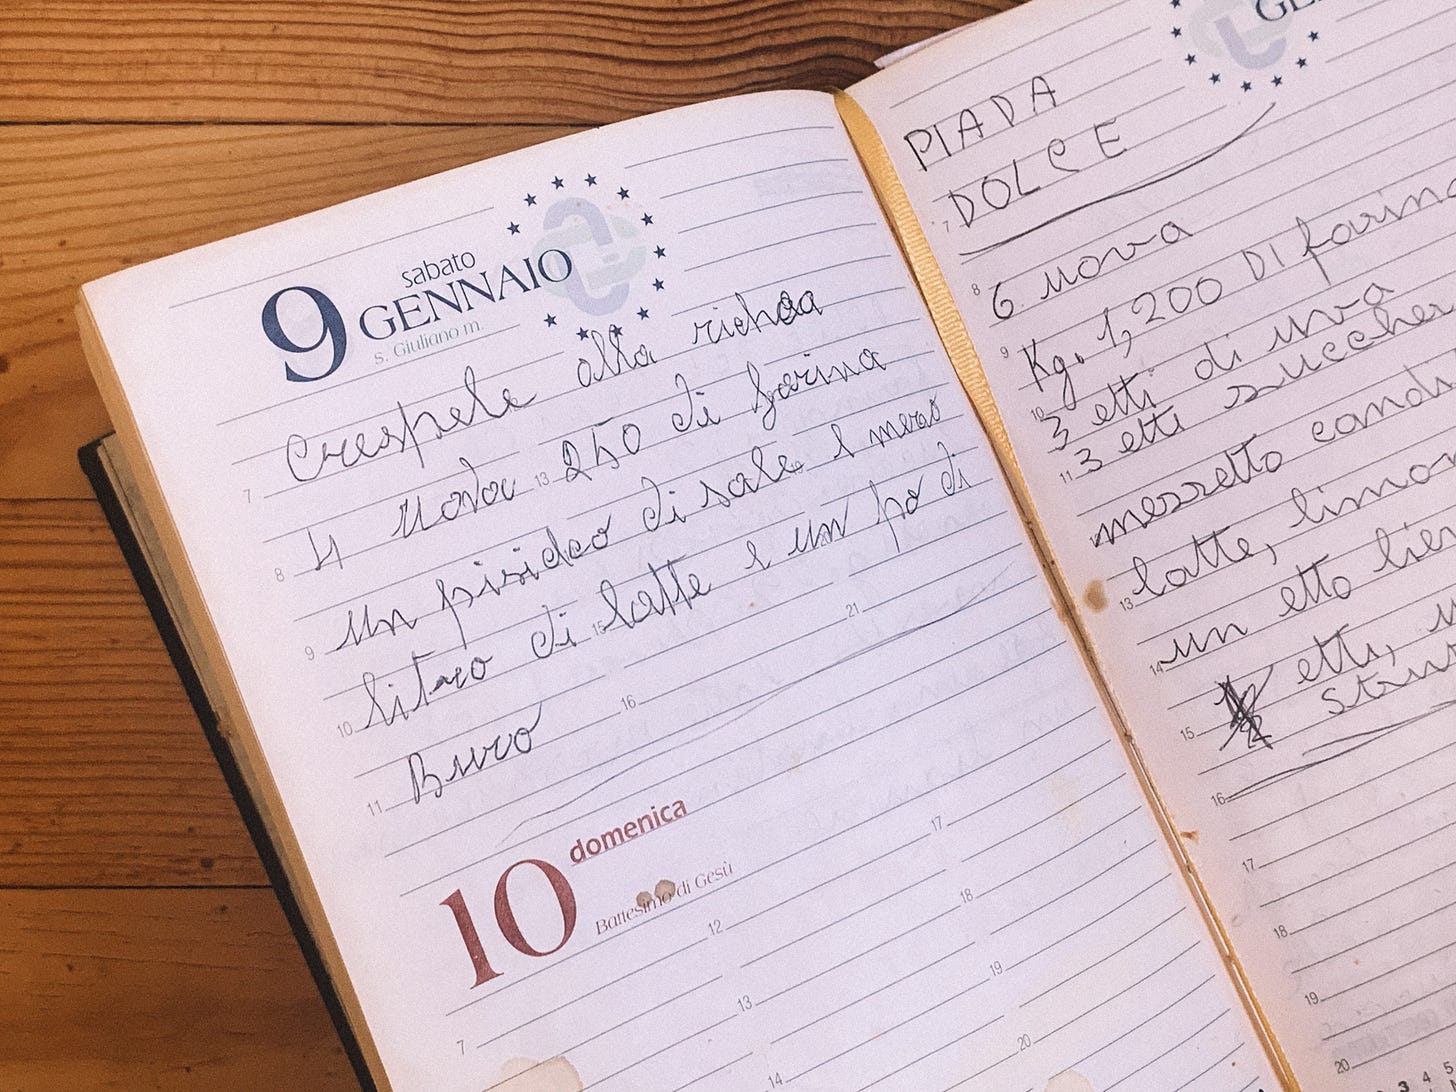 sabato
9 GENNAIO
s. Giuliano m.
Crespele alla
7
4 uova 13 250 di farina
8
un di sale e
9
litro di 15 latte e un po di
10
Buro 16 21
11
domenica
10
Battesimo di Gesù
17
12 18
13 19
7 14 20
PIADA
DOLCE
7
8 6 uova
9 Kg. 1,200 DI farina
10 3 etti di uva
11 3 etti zuccher
candi
13 latte, limon
14 un etto
15 2 etti,
16
17
18
19
20
3 4 5